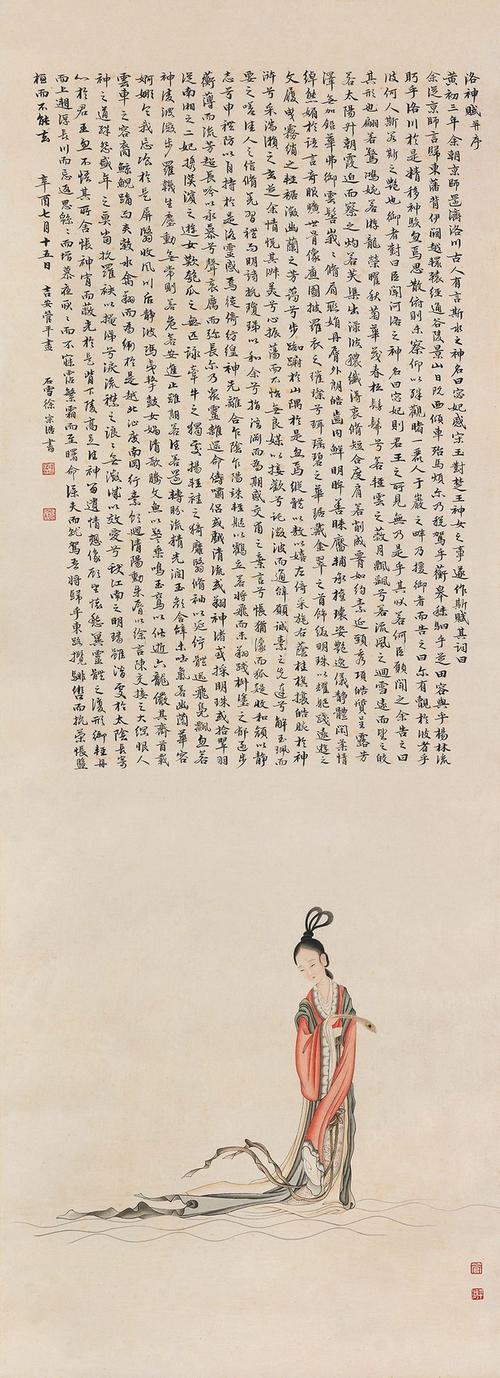 洛神賦并序
黃初三年余朝京師還濟洛川古人有言斯水之神名曰宓妃感宋玉對楚王神女之事遂作斯賦其詞曰
余從京師言歸東藩背伊闕越轘轅經通谷陵景山日既西傾車殆馬煩尔乃稅駕乎蘅皋秣駟乎芝田容與乎楊林流
眄乎洛川於是精移神駭忽焉思散俯則未察仰以殊觀睹一麗人于巖之畔乃援御者而告之曰尔有覿於彼者乎
彼何人斯若斯之艷也御者對曰臣聞河洛之神名曰宓妃則君王之所見無乃是乎其狀若何臣願聞之余告之曰
其形也翩若驚鴻婉若游龍榮曜秋菊華茂春松髣髴兮若輕雲之蔽月飄飄兮若流風之迴雪遠而望之皎
若太陽升朝霞迫而察之灼若芙蕖出淥波穠纖得衷脩短合度肩若削成腰如約素延頸秀項皓質呈露芳
澤無加鉛華弗御雲髻峩峩脩眉聯娟丹脣外朗皓齒內鮮明眸善睞靨輔承權瓌姿艷逸儀靜體閑柔情
綽態媚於語言奇服曠世骨像應圖披羅衣之璀璨兮珥瑤碧之華琚戴金翠之首飾綴明珠以耀軀踐遠遊之
文履曳霧綃之輕裾微幽蘭之芳藹兮步踟躕於山隅於是忽焉縱體以遨以嬉左倚采旄右蔭桂旗攘皓腕於神
滸兮采湍瀨之玄芝余情悅其淑美兮心振蕩而不怡無良媒以接歡兮託微波而通辭願誠素之先達兮解玉珮而
要之嗟佳人之信脩羌習禮而明詩抗瓊珶以和余兮指潛淵而為期感交甫之棄言兮悵猶豫而狐疑收和顏以靜
志兮申禮防以自持於是洛靈感焉徙倚彷徨神光離合乍陰乍陽竦輕軀以鶴立若將飛而未翔踐椒塗之郁烈步
蘅薄而流芳超長吟以永慕兮聲哀厲而弥長尔乃眾靈雜遝命儔嘯侶或戲清流或翔神渚或採明珠或拾翠羽
從南湘之二妃攜漢濱之遊女歎匏瓜之無匹詠牽牛之獨處揚輕袿之猗靡翳脩袖以延佇體迅飛鳧飄忽若
神凌波微步羅韤生塵動無常則若危若安進止難期若往若還轉眄流精光潤玉顏含辭未吐氣若幽蘭華容
婀娜令我忘飡於是屏翳收風川后靜波馮夷擊鼓女媧清歌騰文魚以警乘鳴玉鸞以偕逝六龍儼其齊首載
雲車之容裔鯨鯢踴而夾轂水禽翔而為衛於是越北沚度南岡紆素領迴清陽動朱脣以徐言陳交接之大綱恨人
神之道殊怨盛年之莫當抗羅袂以掩涕兮淚流襟之浪浪無微情以效愛兮獻江南之明璫雖潛處於太陰長寄
心於君王忽不悟其所舍悵神宵而蔽光於是背下陵高足往神留遺情想像顧望懷愁冀靈體之復形御輕舟
而上遡浮長川而忘返思緜緜而增慕夜耿耿而不寐霑繁霜而至曙命僕夫而就駕吾將歸乎東路攬騑轡而抗策悵盤
桓而不能去 辛酉七月十五日 吉安管平畫 石雪徐宗浩書